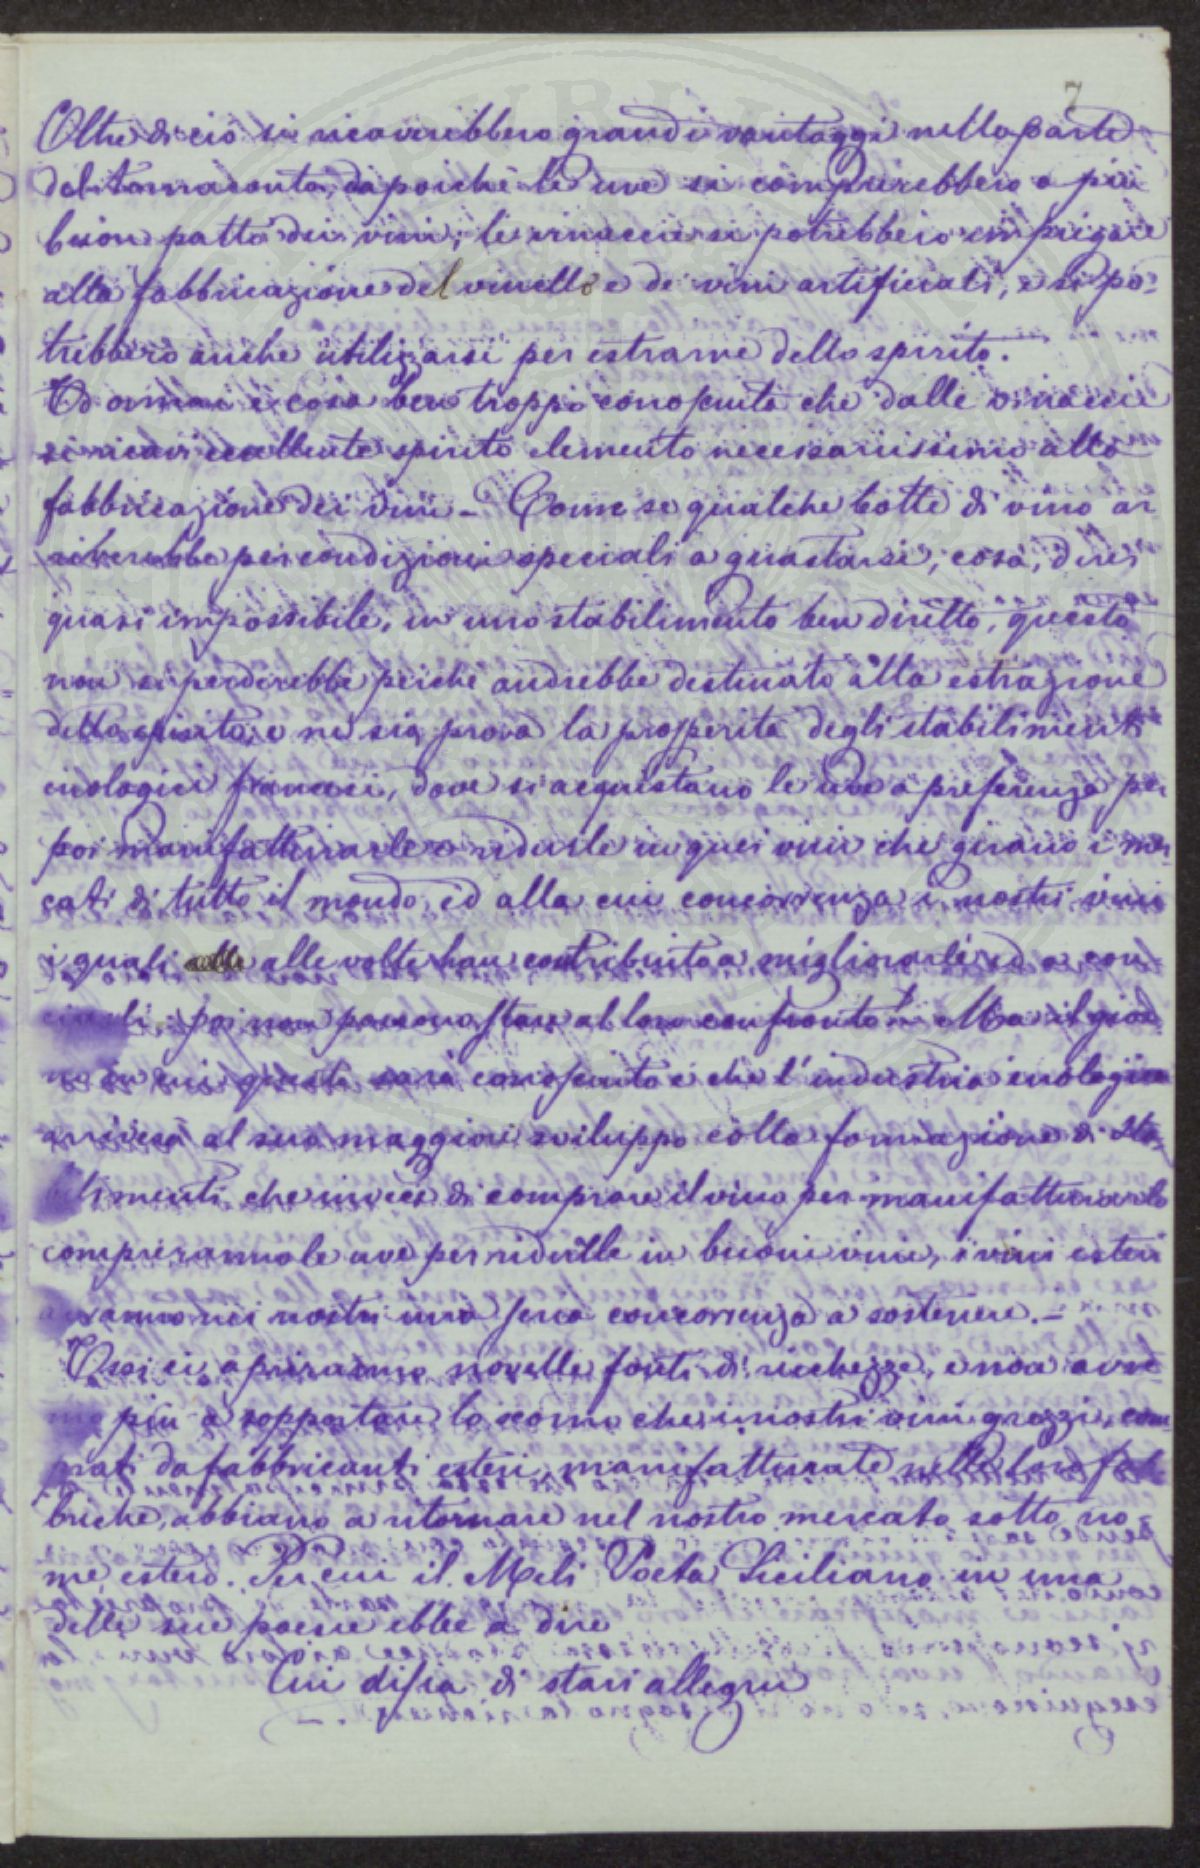 7
Oltre di ciò si ricaverebbero grandi vantaggi nella parte
del tornaconto, dapoichè le uve si comprerebbero a più
buon patto dei vini, le vinaccie si potrebbero impiegare
alla fabbricazione del vinello e di vini artificiali, e si po-
trebbero anche utilizzarsi per estrarne dello spirito.
Ed ormai è cosa ben troppo conosciuta che dalle vinacci
si ricavi eccellente spirito elemento necessarissimo alla
fabbricazione dei vini - Come se qualche botte di vino ar
riverebbe per condizioni speciali a guastarsi, cosa, direi
quasi impossibile, in uno stabilimento ben diretto, questo
non si perderebbe perchè andrebbe destinato alla estrazione
dello spirito, e ne sia prova la prosperità degli stabilimenti
enologici francesi, dove si acquistano le uve a preferenza per
poi manifatturarle e ridurle in quei vini che girano i mer
cati di tutto il mondo, ed alla cui concorrenza i nostri vini
i quali alle volte han contribuito a migliorarli ed a con-
ciarli, poi non possono stare al loro confronto. Ma il gior
no in cui questo sarà conosciuto e che l'industria enologica
arriverà al suo maggiore sviluppo colla formazione di sta-
bilimenti che invece di comprare il vino per manifatturarlo
compreranno le uve per ridurle in buoni vini, i vini esteri
avranno nei nostri una seria concorrenza a sostenere. -
Essi ci apriranno novelle fonti di ricchezze, e non avre
mo più a sopportare lo scorno che i nostri vini grezzi, com
prati da fabbricanti esteri, manifatturati nelle loro fab
briche, abbiano a ritornare nel nostro mercato sotto no-
me estero. Per cui il Meli Poeta Siciliano in una
delle sue poesie ebbe a dire
Cui disia di stari allegru